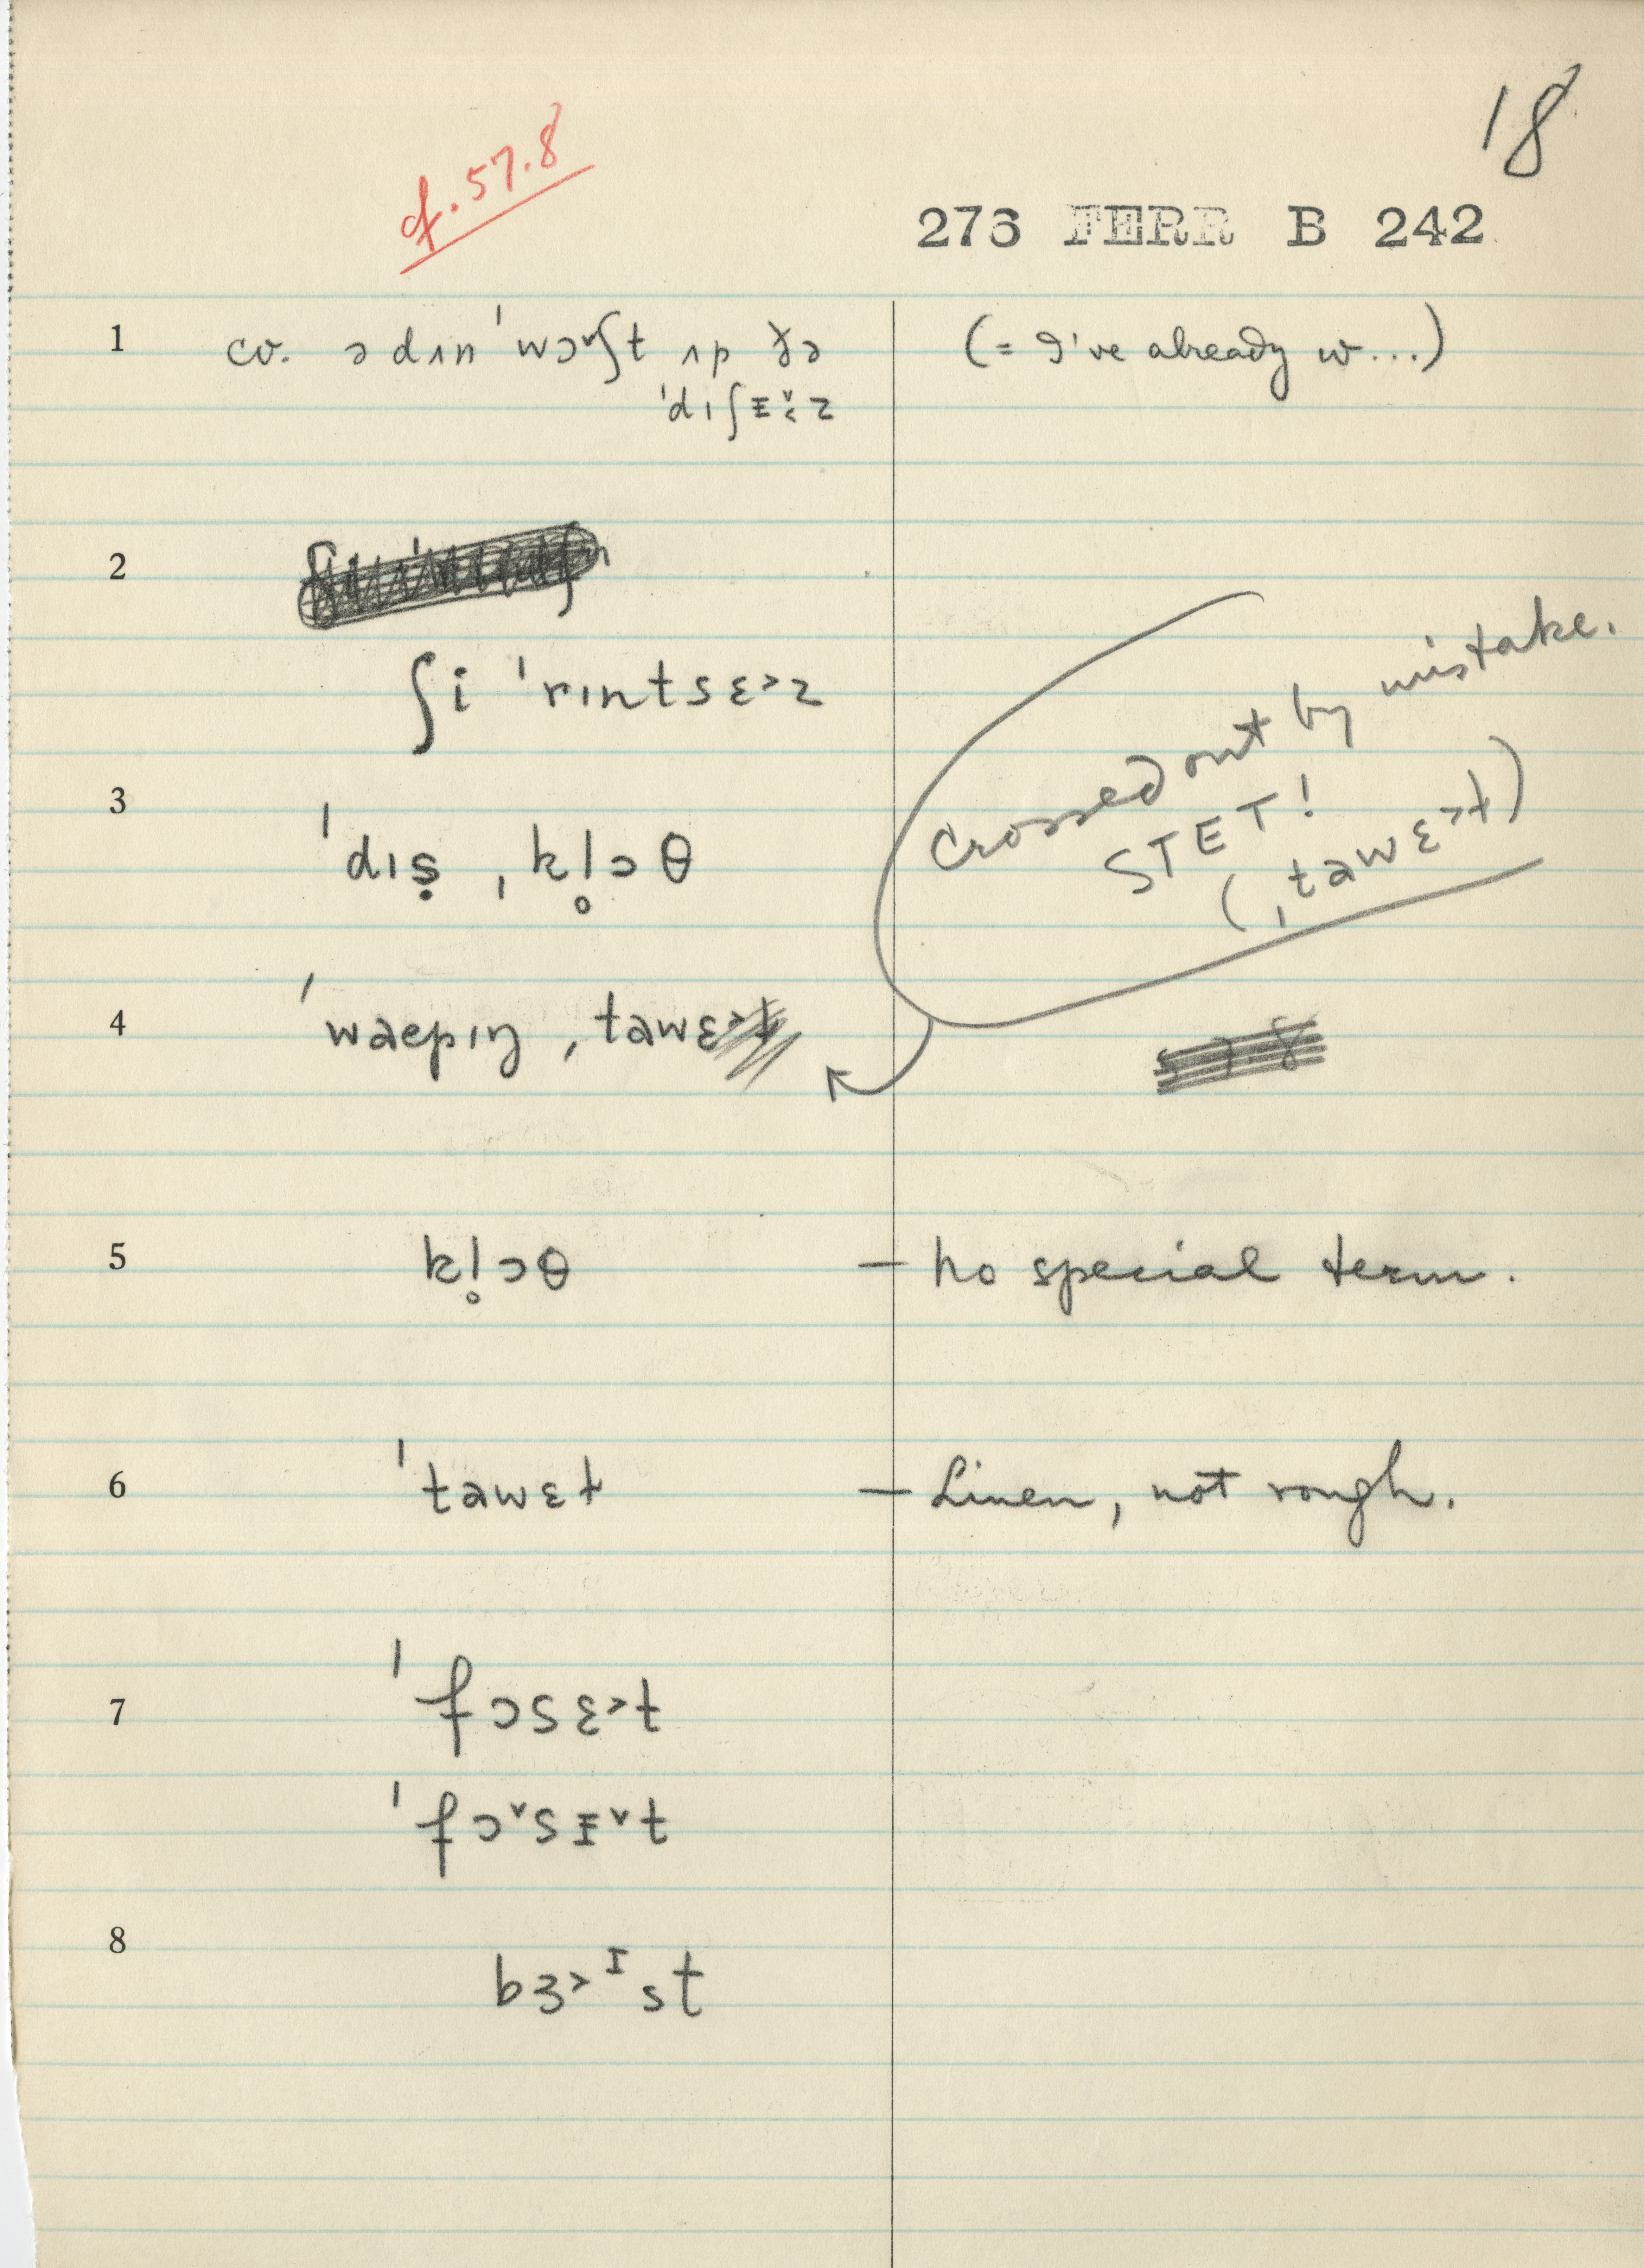 18
cf. 57.8
276 FERR B 242
1 cv. ə dʌn ˈwɔ˅ʃt ʌp ðə (= I've already w...)
ˈdɪʃᵻ˅˂z
2
ʃi ˈrɪntsɛ˃z
3 ˈdɪṣ ˌkl̥ɔθ
Crossed out by mistake.
STET!
(ˌtawɛ˃ɫ)
4 ˈwaepɪŋ ˌtawɛ˃ɫ
57.8
5 kl̥ɔθ – no special term.
6 ˈtawɛɫ – Linen, not rough.
7 ˈfɔsɛ˃t
ˈfɔ˅sᵻ˅t
8 bɜ˃ᴵst